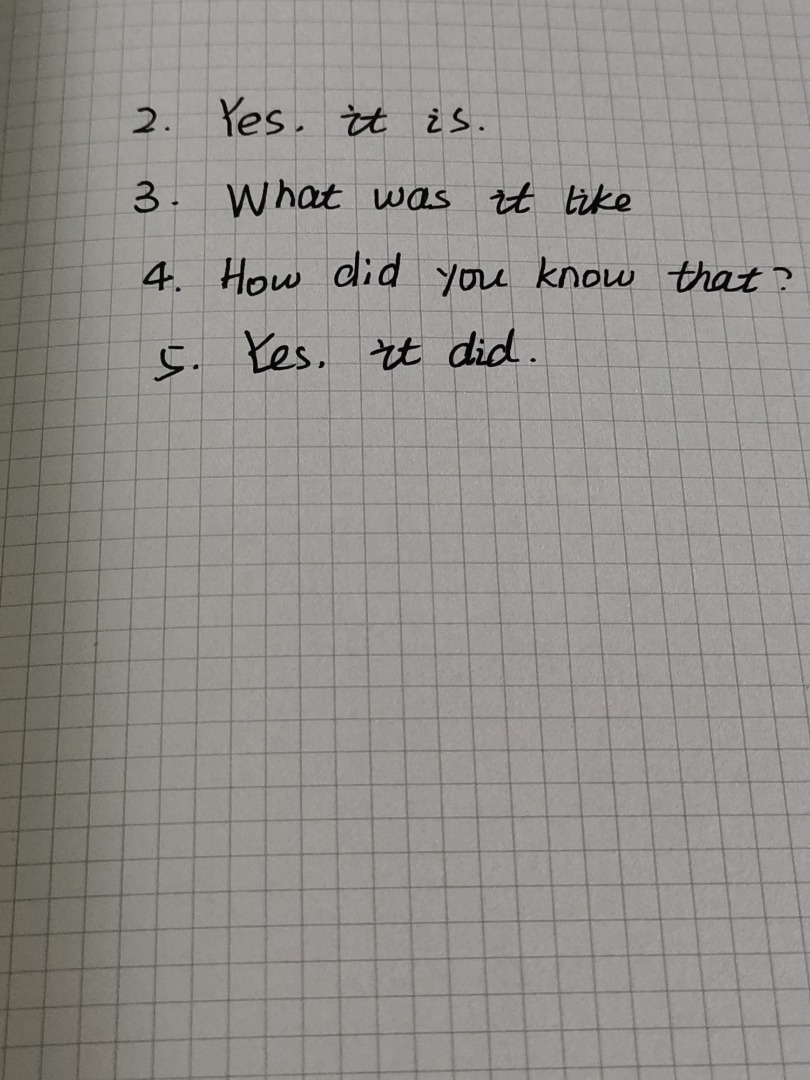 2. Yes. it is.
3. What was it like
4. How did you know that?
5. Yes. it did.